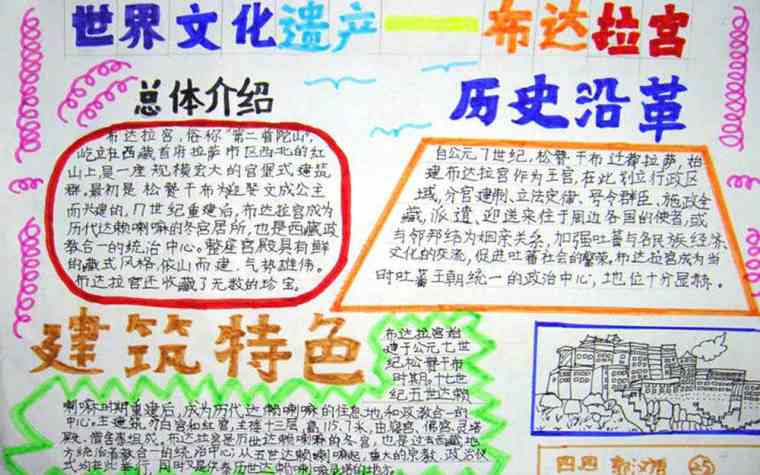 世界文化遗产——布达拉宫
总体介绍
布达拉宫，俗称“第二普陀山”，
屹立在西藏首府拉萨市区西北的红
山上，是一座规模宏大的宫堡式建筑
群。最初是松赞干布为迎娶文成公主
而兴建的，17世纪重建后，布达拉宫成为
历代达赖喇嘛的冬宫居所，也是西藏政
教合一的统治中心。整座宫殿具有鲜
的藏式风格，依山而建，气势雄伟。
布达拉宫还收藏了无数的珍宝。
历史沿革
自公元7世纪，松赞干布迁拉萨，始
建布达拉宫作为王宫，在此划立行政区
域，分官建制、立法定律、号令群臣，施政全
藏，派遣、迎送来往于周边各国的使者，或
与邻邦结为姻亲关系，加强吐蕃与各民族经济
文化的交流，促进吐蕃社会的繁荣。布达拉宫成为当
时吐蕃王朝统一的政治中心，地位十分显赫。
建筑特色
布达拉宫始
建于公元七世
纪，松赞干布
时期。十七世
纪五世达赖
喇嘛时期重建后，成为历代达赖喇嘛的住息地和政教合一的
中心。主建筑分白宫和红宫，主楼十三层，高115.7米，由寝宫、佛殿、灵塔
殿、僧舍等组成。布达拉宫是历世达赖喇嘛的冬宫，也是过去西藏地
方统治者政教合一的统治中心，从五世达赖喇嘛起，重大的宗教、政治仪
式均在此举行，同时又是供奉历世达赖喇嘛灵塔的地方。
四四